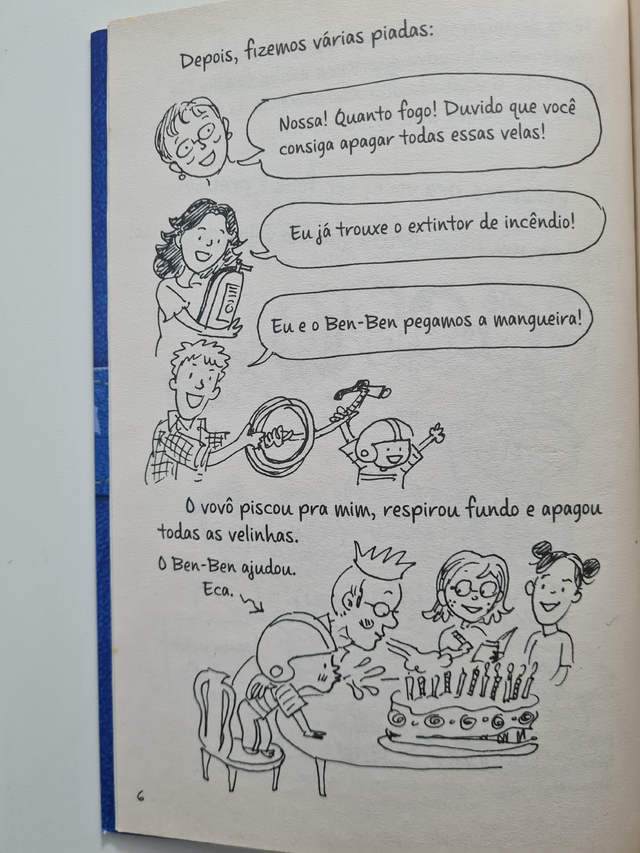 Depois, fizemos várias piadas:
Nossa! Quanto fogo! Duvido que você
consiga apagar todas essas velas!
Eu já trouxe o extintor de incêndio!
Eu e o Ben-Ben pegamos a mangueira!
O vovô piscou pra mim, respirou fundo e apagou
todas as velinhas.
O Ben-Ben ajudou.
Eca.
6